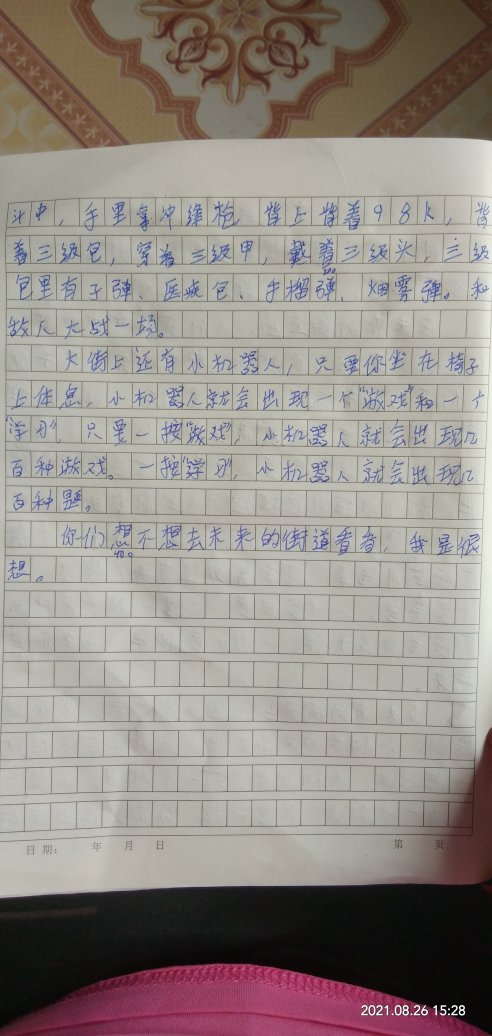 斗中，手里拿冲锋枪，背上背着98K，背
着三级包，穿着三级甲，戴着三级头，三级
包里有子弹、医疗包、手榴弹、烟雾弹。和
敌人大战一场。
大街上还有小机器人，只要你坐在椅子
上休息，小机器人就会出现一个“游戏”和一个
“学习”，只要一按“游戏”，小机器人就会出现几
百种游戏。一按“学习”，小机器人就会出现几
百种题。
你们想不想去未来的街道看看，我是很
想。
日期： 年 月 日 第 页
2021.08.26 15:28